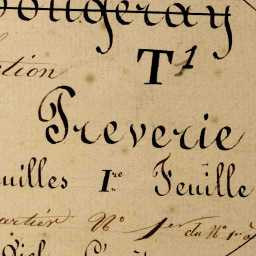 Fougeray
T1
ction
Treverie
uilles Ire Feuille
artier No 1er du No 1er à